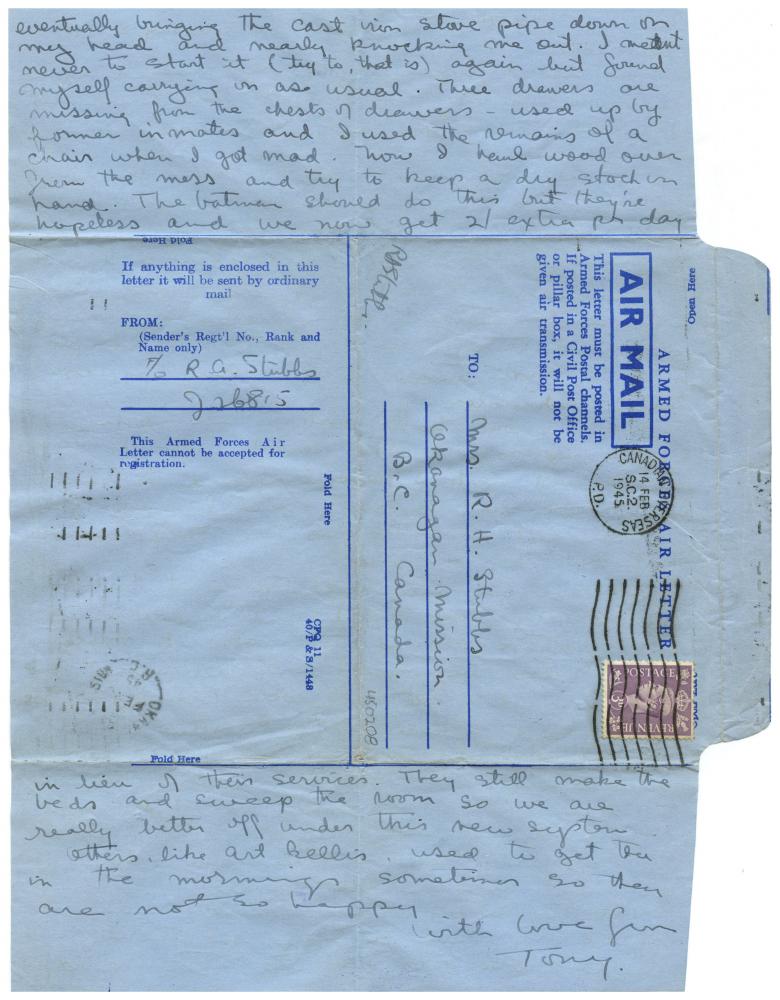 eventually bringing the cast iron stove pipe down on
my head and nearly knocking me out. I meant
never to start it (try to, that is) again but found
myself carrying on as usual. Three drawers are
missing from the chests of drawers - used up by
former inmates and I used the remains of a
chair when I got mad. Now I haul wood over
from the mess and try to keep a dry stock on
hand. The batman should do this but they're
hopeless and we now get 2/ extra per day
Fold Here
If anything is enclosed in this
letter it will be sent by ordinary
mail
FROM:
(Sender's Regt'l No., Rank and
Name only)
R. A. Stubbs
This Armed Forces Air
Letter cannot be accepted for
registration.
Fold Here
CPO 11
40/P & S/1448
Open Here
ARMED FORCES AIR LETTER
AIR MAIL
This letter must be posted in
Armed Forces Postal channels.
If posted in a Civil Post Office
or pillar box, it will not be
given air transmission.
CANADIAN OVERSEAS
14 FEB
S.C.2.
1945
P.D.
POSTAGE
REVENUE
3D
TO:
Mrs. R. H. Stubbs
Okanagan Mission
B.C. Canada.
450208
Fold Here
in lieu of their services. They still make the
beds and sweep the room so we are
really better off under this new system
Others, like Art Kellis, used to get tea
in the mornings sometimes so they
are not so happy
with love from
Tony.